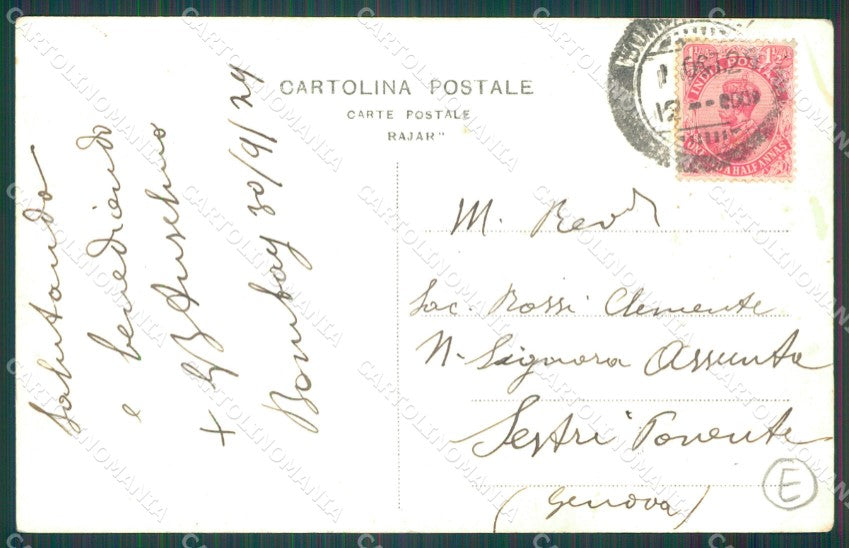 CARTOLINA POSTALE
CARTE POSTALE
RAJAR"
Salutando
e benedicendo
+ Anselmo
Bombay 30/9/29
1½ 1½
INDIA POSTAGE
ONE & A HALF ANNAS
M. Revd
Sac. Rossi Clemente
N. Signora Assunta
Sestri Ponente
(Genova)
E
CARTOLINOMANIA